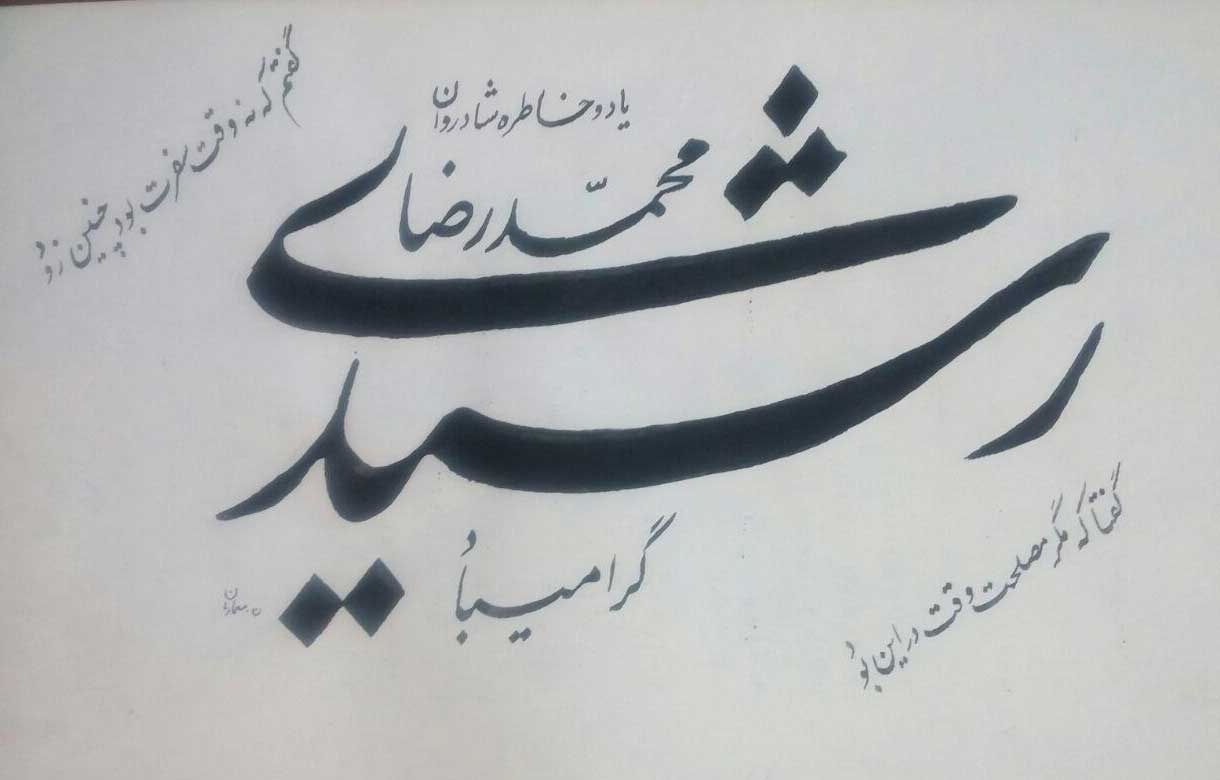 گفتم که نه وقت سفرت بود چنین زود
یاد و خاطره شادروان
محمّدرضای
رشیدی
گرامیباد
گفتا که مگر مصلحت وقت در این بود